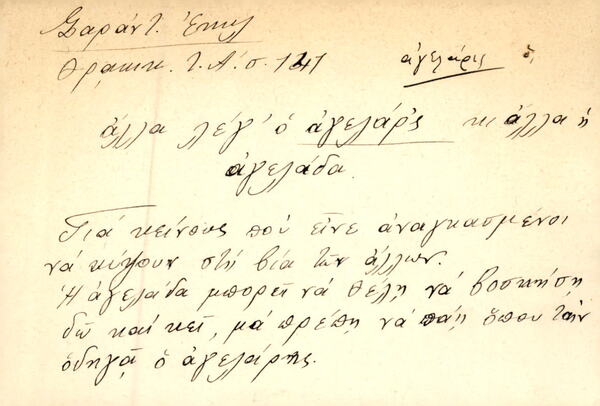 Σαράντ. Ἐκκλ
Θρακικ. τ. Α΄. σ. 141
ἀγελάρις ὁ
ἄλλα λέγ' ὁ ἀγελάρς κι ἄλλα ἡ
ἀγελάδα.
Γιά κείνους πού εἶνε ἀναγκασμένοι
νά κύψουν στή βία τῶν ἄλλων.
Ἡ ἀγελάδα μπορεῖ νά θέλῃ νά βοσκήσῃ
δῶ καί κεῖ, μά πρέπῃ νά πάῃ ὅπου τήν
ὁδηγᾷ ὁ ἀγελάρης.